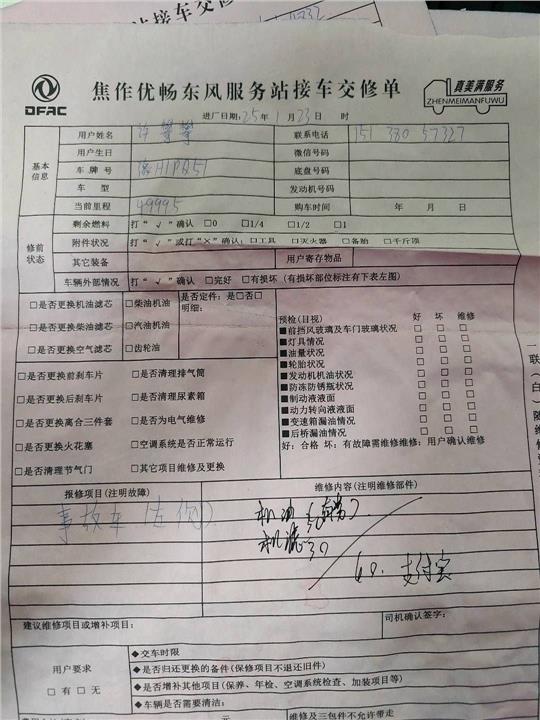 焦作优畅东风服务站接车交修单
DFAC
真美满服务
ZHENMEIMANFUWU
进厂日期：25年1月23日 时
基本信息
用户姓名 许攀攀 联系电话
用户生日 微信号码
车牌号 底盘号码
车 型 发动机号码
当前里程 49995 购车时间 年 月 日
修前状态
剩余燃料 打“√”确认 □0 □1/4 □1/2 □1
附件状况 打“√”或打“×”确认：□工具 □灭火器 □备胎 □千斤顶
其它装备 用户寄存物品
车辆外部情况 打“√”确认 □完好 □有损坏（有损坏部位标注有下表左图）
□是否更换机油滤芯 □柴油机油 是否定件：是□否□
明细：
□是否更换柴油滤芯 □汽油机油
□是否更换空气滤芯 □齿轮油
□是否更换前刹车片 □是否清理排气筒
□是否更换后刹车片 □是否清理尿素箱
□是否更换离合三件套 □是否为电气维修
□是否更换火花塞 □空调系统是否正常运行
□是否清理节气门 □其它项目维修及更换
预检(目视) 好 坏 维修
■前挡风玻璃及车门玻璃状况 □ □ □
■灯具情况 □ □ □
■油量状况 □ □ □
■轮胎状况 □ □ □
■发动机机油状况 □ □ □
■防冻防锈瓶状况 □ □ □
■制动液液面 □ □ □
■动力转向液液面 □ □ □
■变速箱漏油情况 □ □ □
■后桥漏油情况 □ □ □
好：合格 坏：有故障需维修维修：用户确认维修
报修项目(注明故障) 维修内容(注明维修部件)
事故车（左侧）
机油
机滤 30
60. 支付宝
建议维修项目或增补项目： 司机确认签字：
用户要求
□有□无
◆交车时限
◆是否归还更换的备件(保修项目不退还旧件)
◆是否增补其他项目(保养、年检、空调系统检查、加装项目等)
◆车辆是否需要清洁：
元 维修及三包件不允许带走